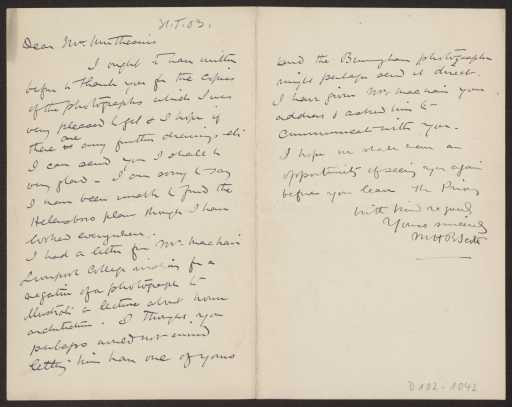 31.5.03.
Dear Mr. Muthesius
I ought to have written
before to thank you for the copies
of the photographs which I was
very pleased to get & I hope if
there are any further drawings etc
I can send you I shall be
very glad – I am sorry to say
I have been unable to find the
Helensboro plans though I have
looked everywhere.
I had a letter from Mr.
Liverpool College asking for a
negative of a photograph to
illustrate a lecture about house
architecture. I thought you
perhaps would not mind
letting him have one of yours
and the Birmingham photographer
might perhaps send it direct.
I have given Mr. your
address & asked him to
communicate with you.
I hope we shall have an
opportunity of seeing you again
before you leave the Priory
With kind regards
Yours sincerely
M H B Scott
D 102 - 1042